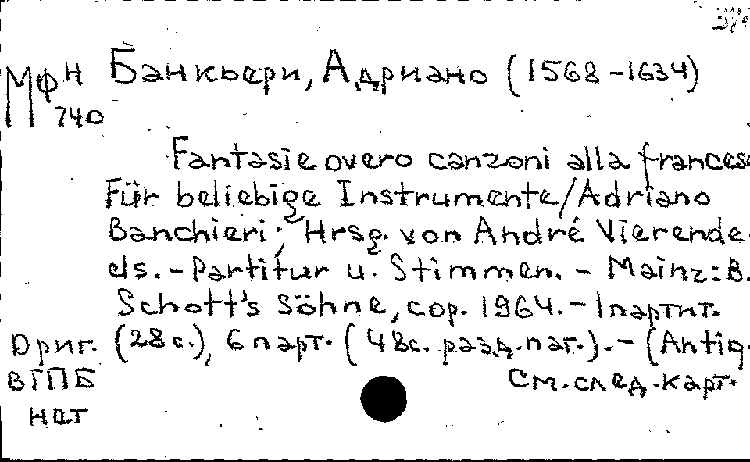 МФН Банкьери, Адриано (1568-1634)
740
Fantasie overo canzoni alla francese
Für beliebige Instrumente/Adriano
Banchieri; Hrsg. von André Vierende-
els. - Partitur u. Stimmen. - Mainz: B.
Schott's Söhne, cop. 1964. - 1 партит.
Ориг. (28 с.), 6 парт. (48с. разд. паг.). - (Antiq.
ВГПБ См. след. карт.
нот